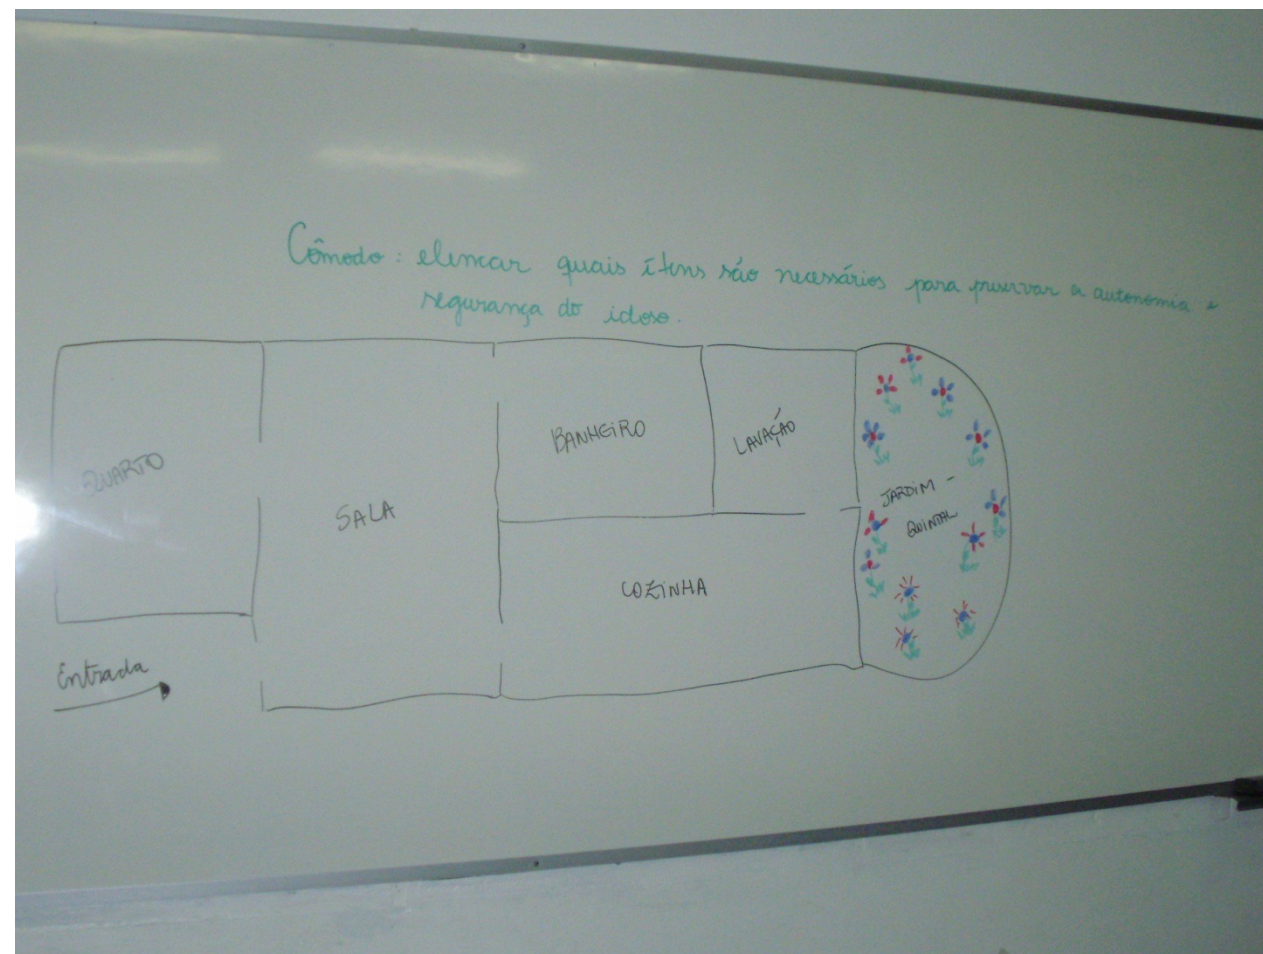 Cômodo: elencar quais ítens são necessários para preservar a autonomia e
segurança do idoso.
QUARTO
SALA
BANHEIRO
LAVAÇÃO
JARDIM -
QUINTAL
COZINHA
Entrada